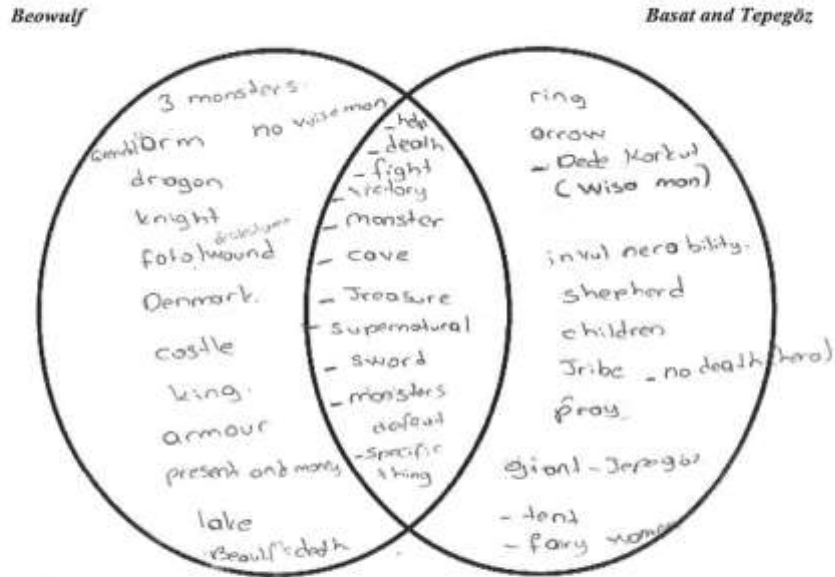 Beowulf
Basat and Tepegöz
3 monsters.
no wiseman
arm
dragon
knight
fatal wound
Denmark.
castle
king.
armour
present and money
lake
Beowulf's death
- help
- death
- fight
- victory
- monster
- cave
- Treasure
- supernatural
- sword
- monsters
defeat
- specific
thing
ring
arrow
- Dede Korkut
(wise man)
invulnerability.
shepherd
children
Tribe - no death (hero)
pray
giant - Tepegöz
- tent
- fairy woman